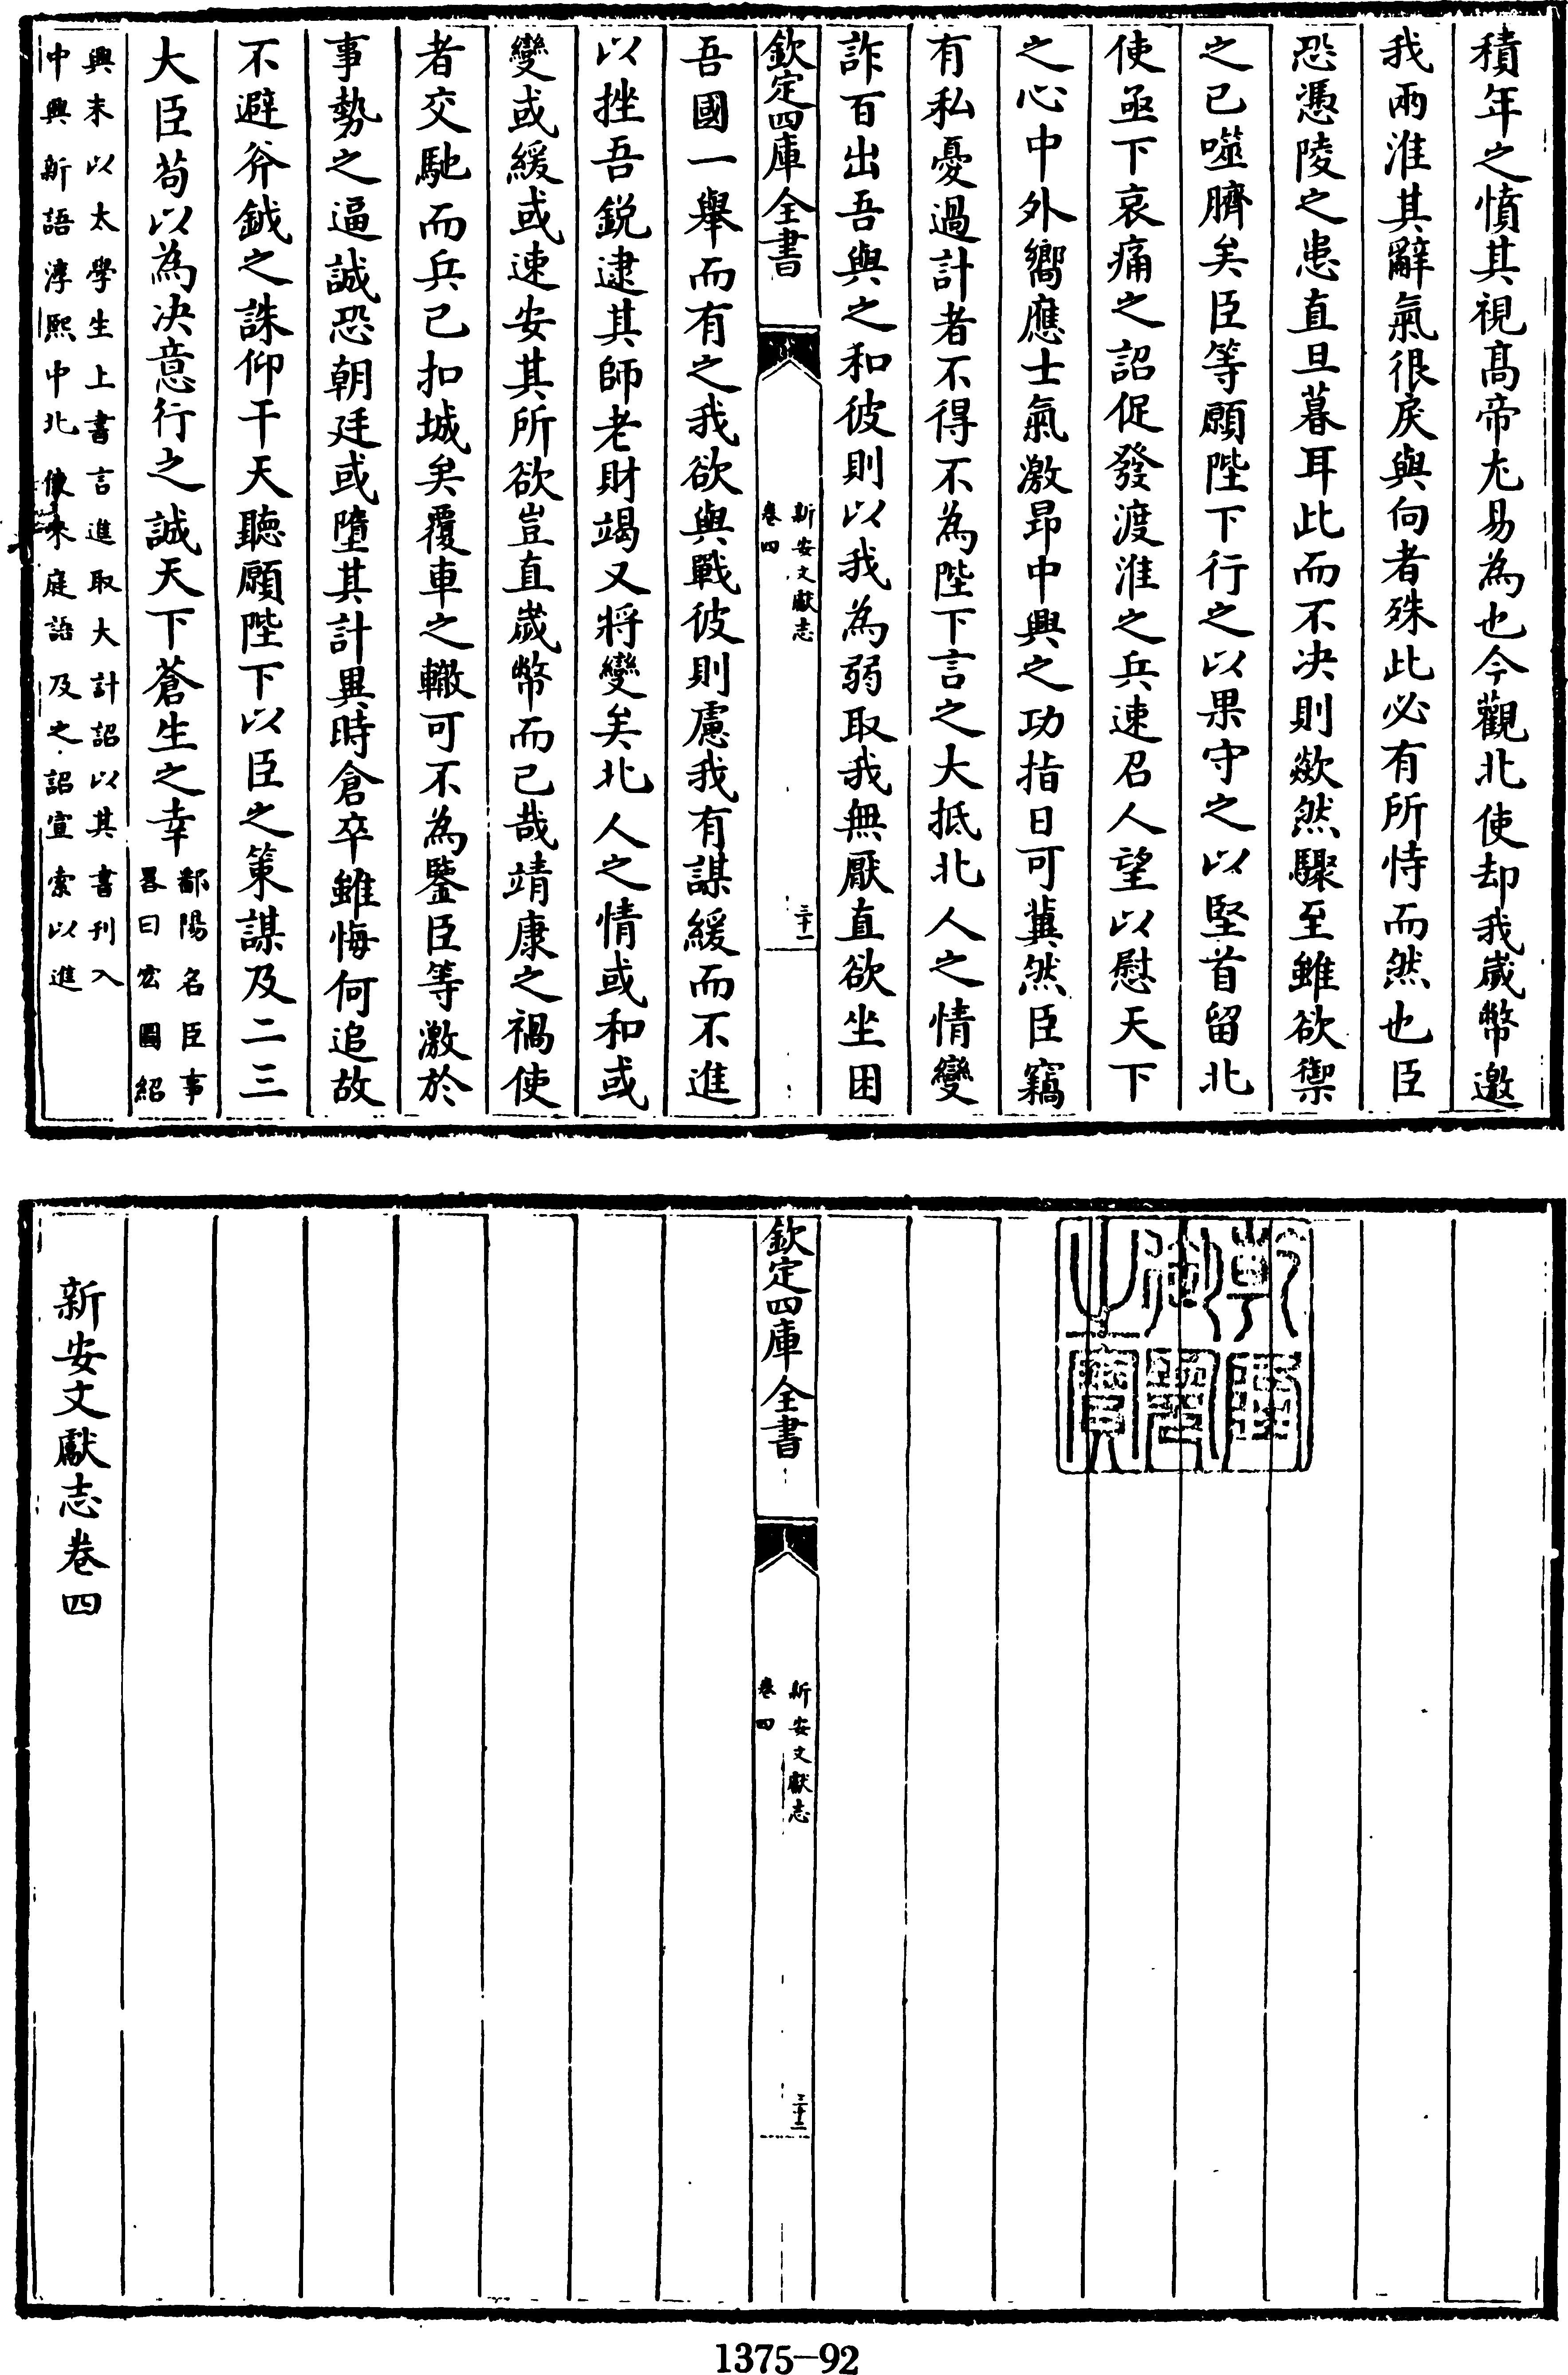 積年之憤其視髙帝尤易為也今觀北使却我嵗幣邀
我兩淮其辭氣很戾與向者殊此必有所恃而然也臣
恐憑陵之患直旦暮耳此而不决則歘然驟至雖欲禦
之已噬臍矣臣等願陛下行之以果守之以堅首留北
使亟下哀痛之詔促發渡淮之兵速召人望以慰天下
之心中外嚮應士氣激昂中興之功指日可冀然臣竊
有私憂過計者不得不為陛下言之大抵北人之情變
詐百出吾與之和彼則以我為弱取我無厭直欲坐困
欽定四庫全書
新安文獻志
卷四
三十一
吾國一舉而有之我欲與戰彼則慮我有謀緩而不進
以挫吾鋭逮其師老財竭又將變矣北人之情或和或
變或緩或速安其所欲豈直嵗幣而已哉靖康之禍使
者交馳而兵已扣城矣覆車之轍可不為鑒臣等激於
事勢之逼誠恐朝廷或墮其計異時倉卒雖悔何追故
不避斧鉞之誅仰干天聽願陛下以臣之策謀及二三
大臣茍以為决意行之誠天下蒼生之幸
鄱陽名臣事
畧曰宏圖紹
興末以太學生上書言進取大計詔以其書刋入
中興新語淳熙中北使來庭語及之詔宣索以進
乾隆
御覽
之寶
欽定四庫全書
新安文獻志
卷四
三十二
新安文獻志卷四
1375-92